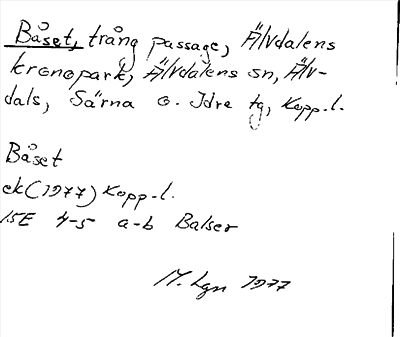 Båset, trång passage, Älvdalens
kronopark, Älvdalens sn, Älv-
dals, Särna o. Idre tg, Kopp.l.
Båset
ek (1977) Kopp.l.
15E 4-5 a-b Balser
M. Lgn 1977